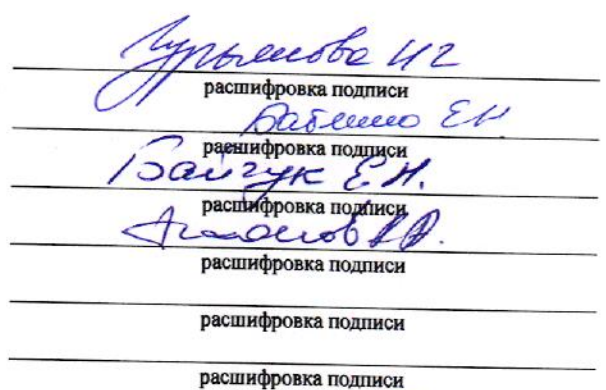 Гурьянова ИГ
расшифровка подписи
ЕН
расшифровка подписи
Байчук Е.Н.
расшифровка подписи
расшифровка подписи
расшифровка подписи
расшифровка подписи